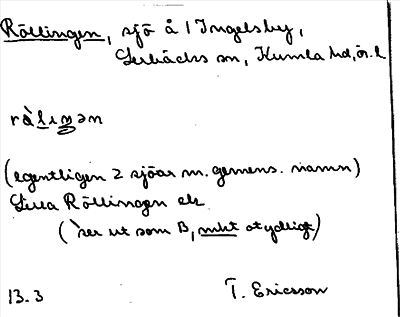 Rällingen, sjö å 1 Ingelsby,
Lerbäcks sn, Kumla hd, ör. l
(egentligen 2 sjöar m. gemens. namn)
Lilla Rällingen etc
(ser ut som B, mkt otydligt)
13.3 T. Ericsson